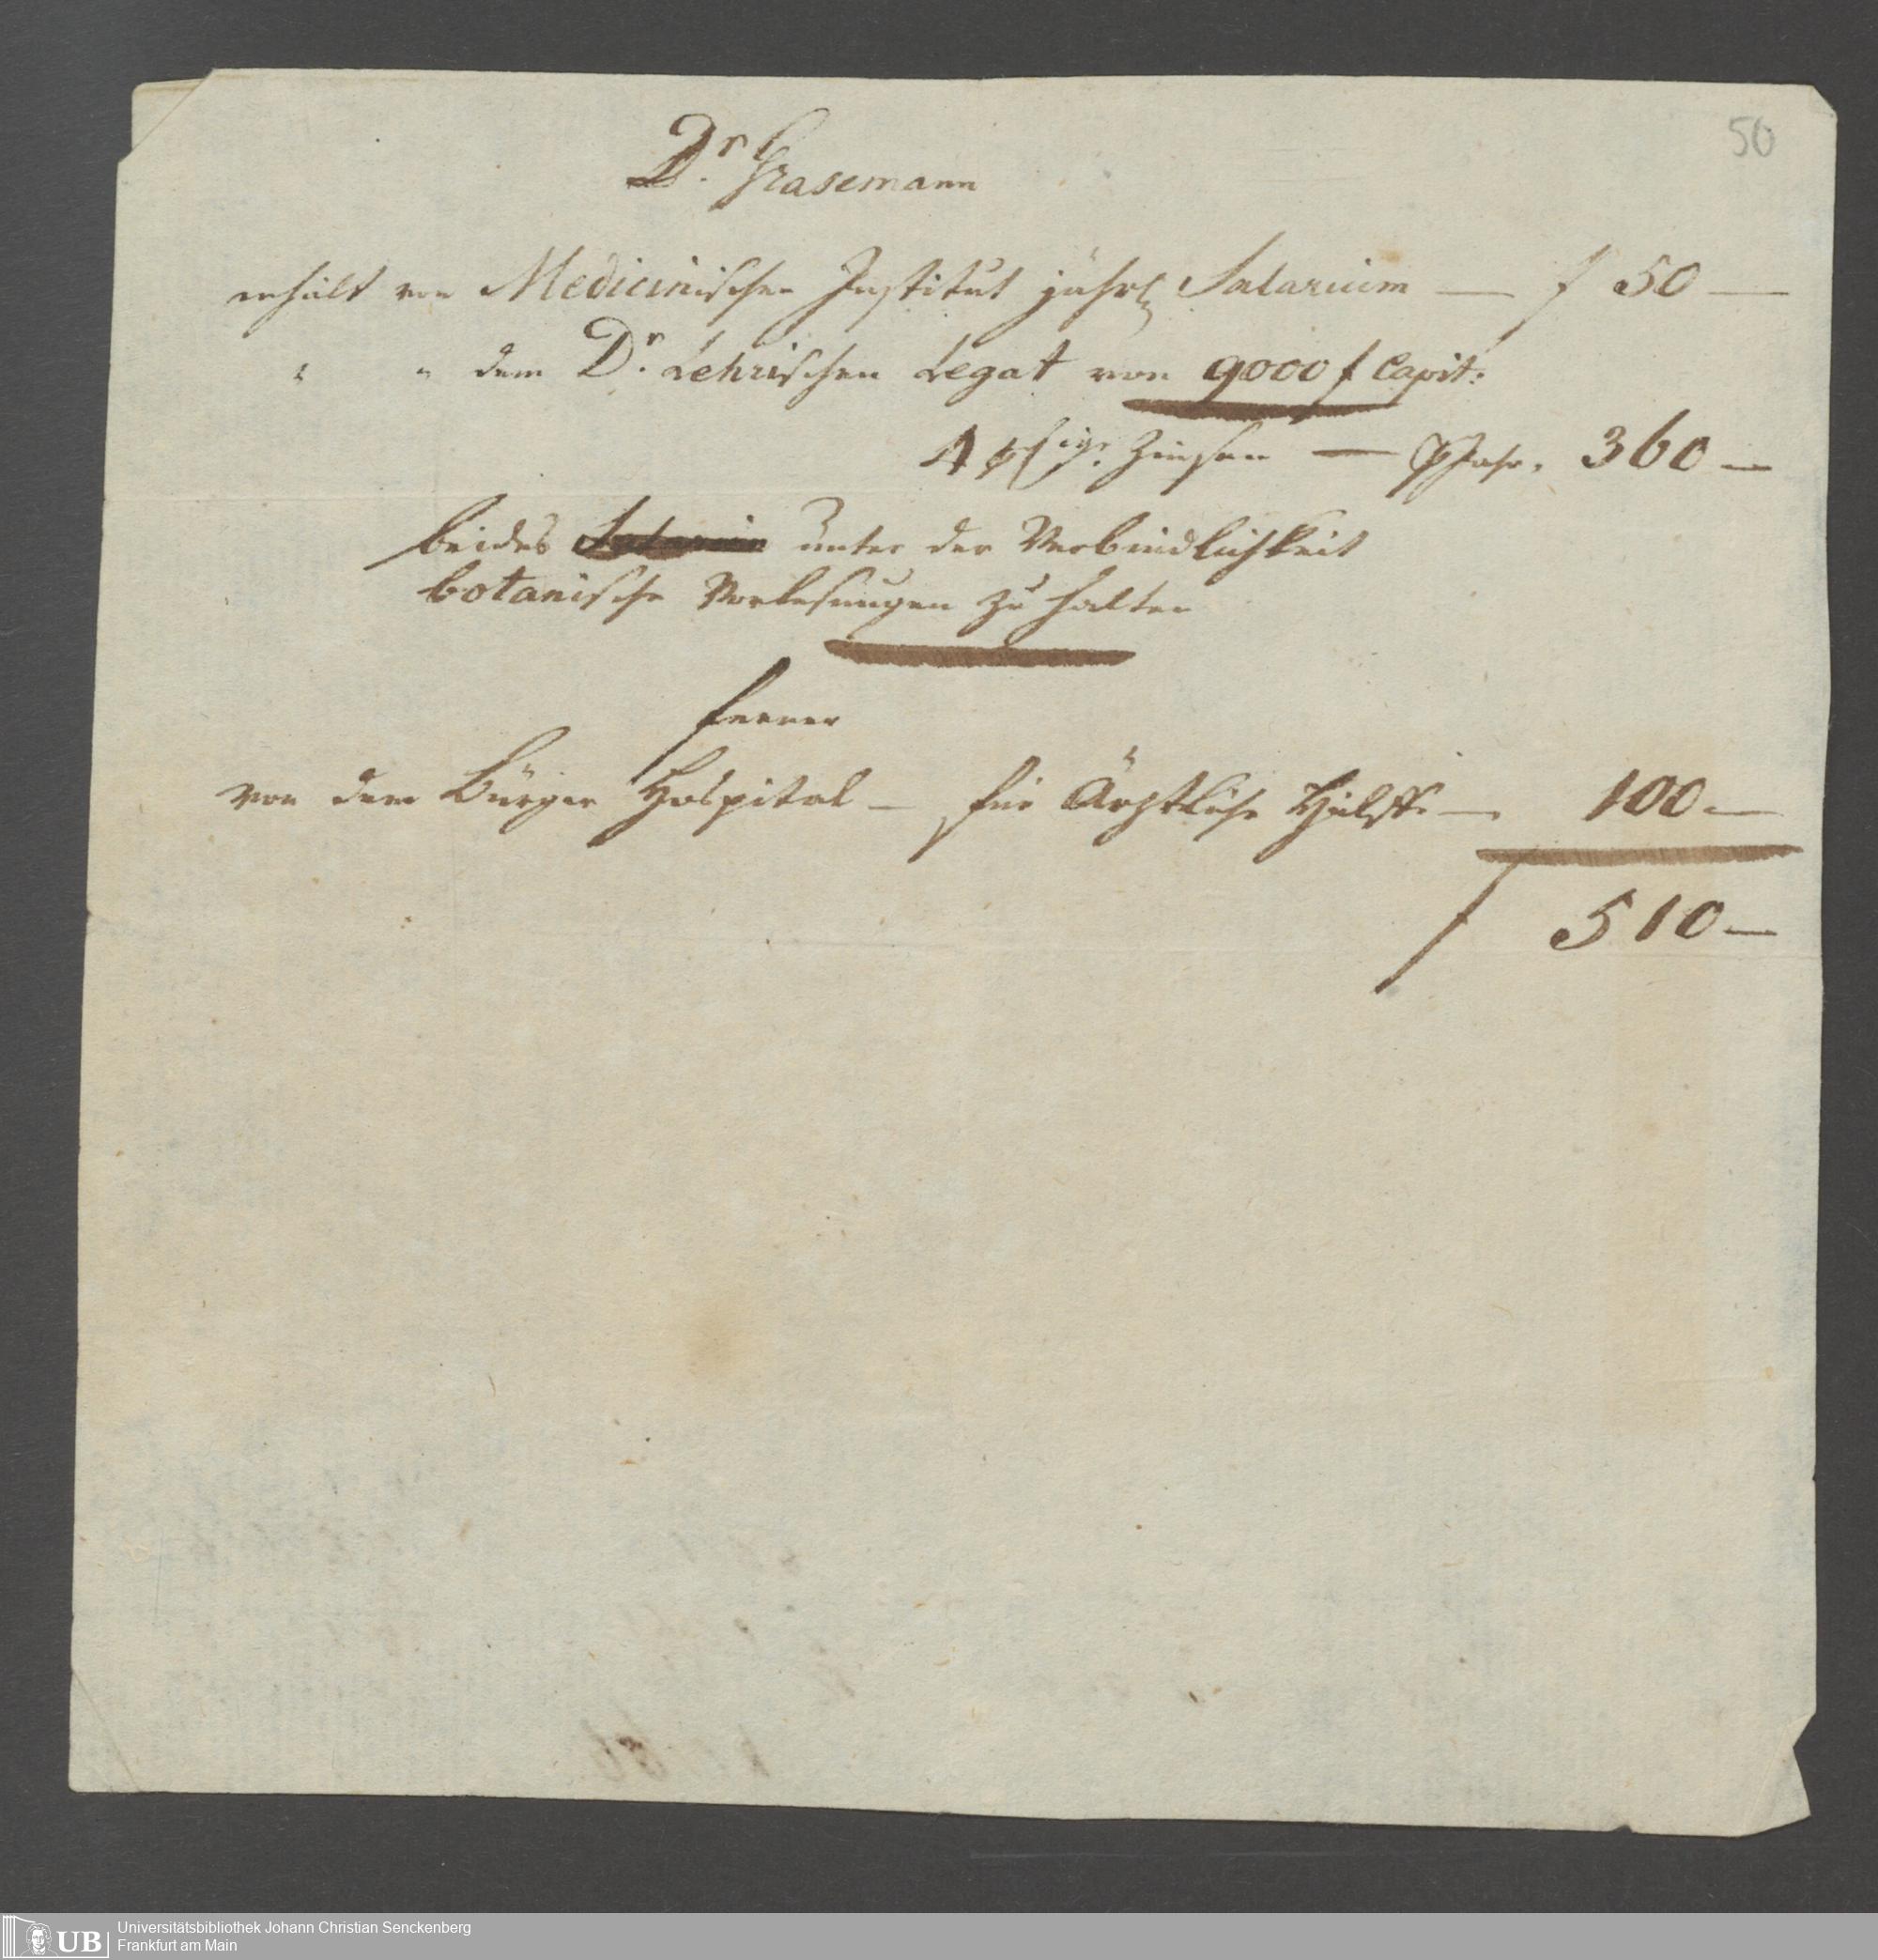 50
Dr. Grasemann
erhält von Medicinischen Institut jährl Salarium — f 50 —
" " dem Dr. Lehrischen Legat von 9000 f Capit:
4 Zinsen — Jahr. 360 —
beides Salarien unter der Verbindlichkeit
botanische Vorlesungen zu halten
ferner
von dem Bürger Hospital — für Ärztliche Hülffe — 100 —
f 510 —
UB
Universitätsbibliothek Johann Christian Senckenberg
Frankfurt am Main